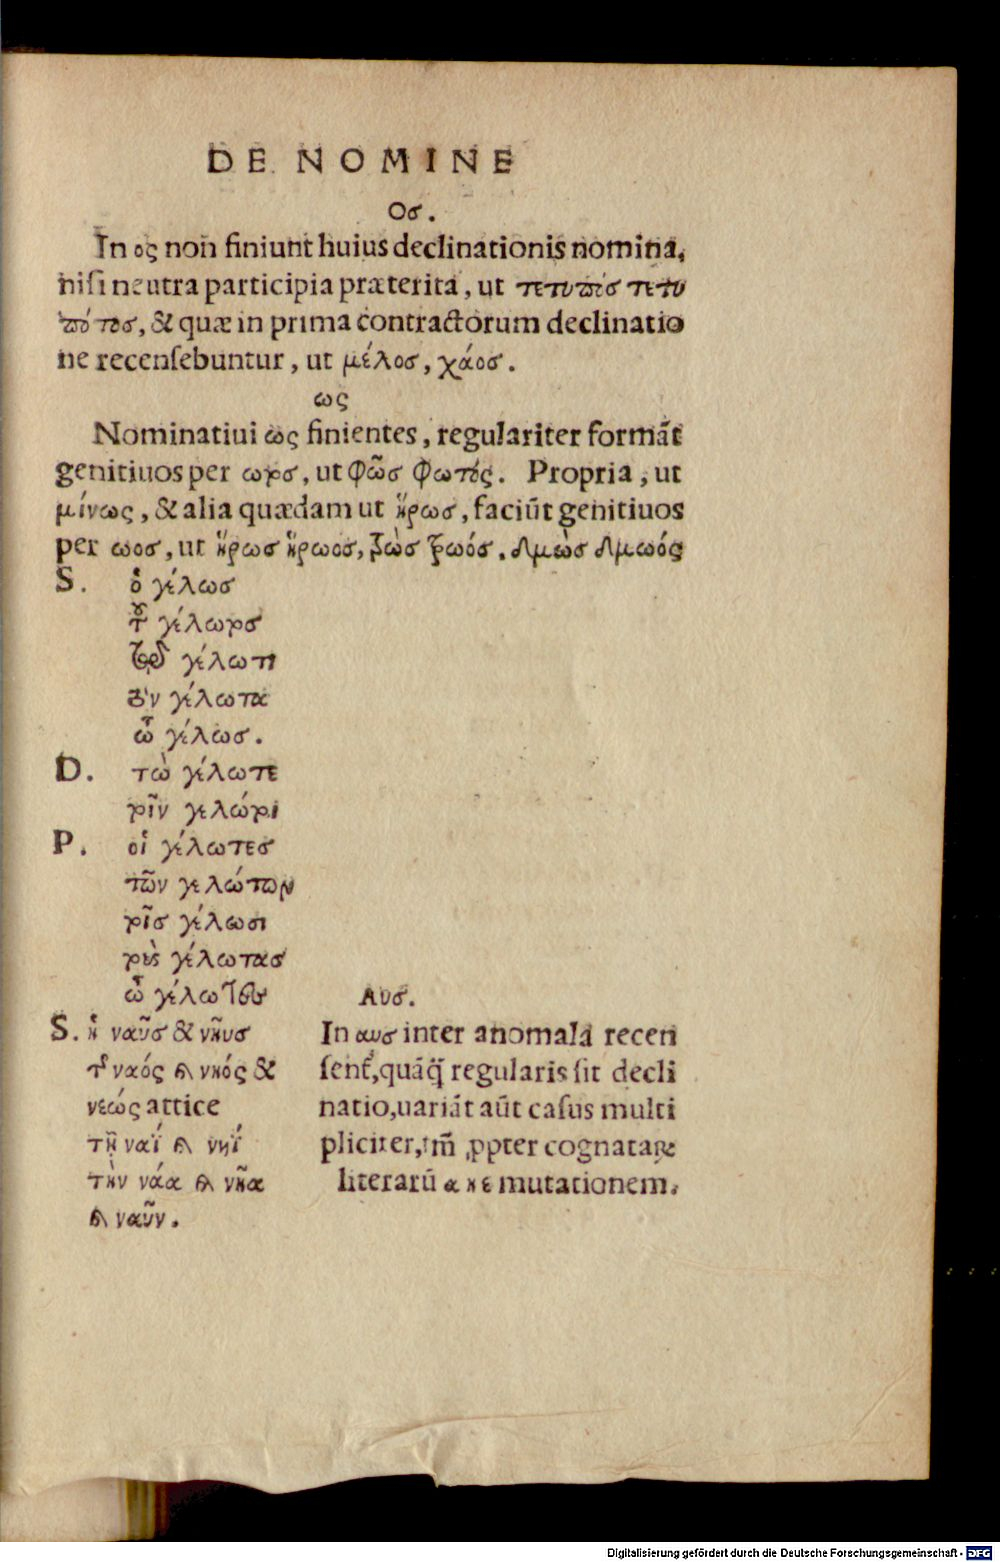 DE NOMINE
Ος.
In ος non finiunt huius declinationis nomina,
nisi neutra participia præterita, ut τετυπὸς τετυ
πότος, & quæ in prima contractorum declinatio
ne recensebuntur, ut μέλος, χάος.
ως
Nominatiui ως finientes, regulariter formãt
genitiuos per ωτος, ut φῶς φωτός. Propria, ut
μίνως, & alia quædam ut ἥρως, faciũt genitiuos
per ωος, ut ἥρως ἥρωος, δμὼς δμωός
S. ὁ γέλως
τοῦ γέλωτος
τῷ γέλωτι
τὸν γέλωτα
ὦ γέλως.
D. τὼ γέλωτε
τοῖν γελώτοι
P. οἱ γέλωτες
τῶν γελώτων
τοῖς γέλωσι
τοὺς γέλωτας
ὦ γέλωτες
Αυς.
S. ἡ ναῦς & νηῦς
τῆς ναός καὶ νηός &
νεώς attice
τῇ ναΐ καὶ νηΐ
τὴν νάα καὶ νῆα
καὶ ναῦν.
In αυς inter anomala recen
sent᷑, quãq̃ regularis sit decli
natio, uariãt aũt casus multi
pliciter, tm̃ ꝓpter cognataꝝ
literarũ α η ε mutationem.
Digitalisierung gefördert durch die Deutsche Forschungsgemeinschaft - DFG